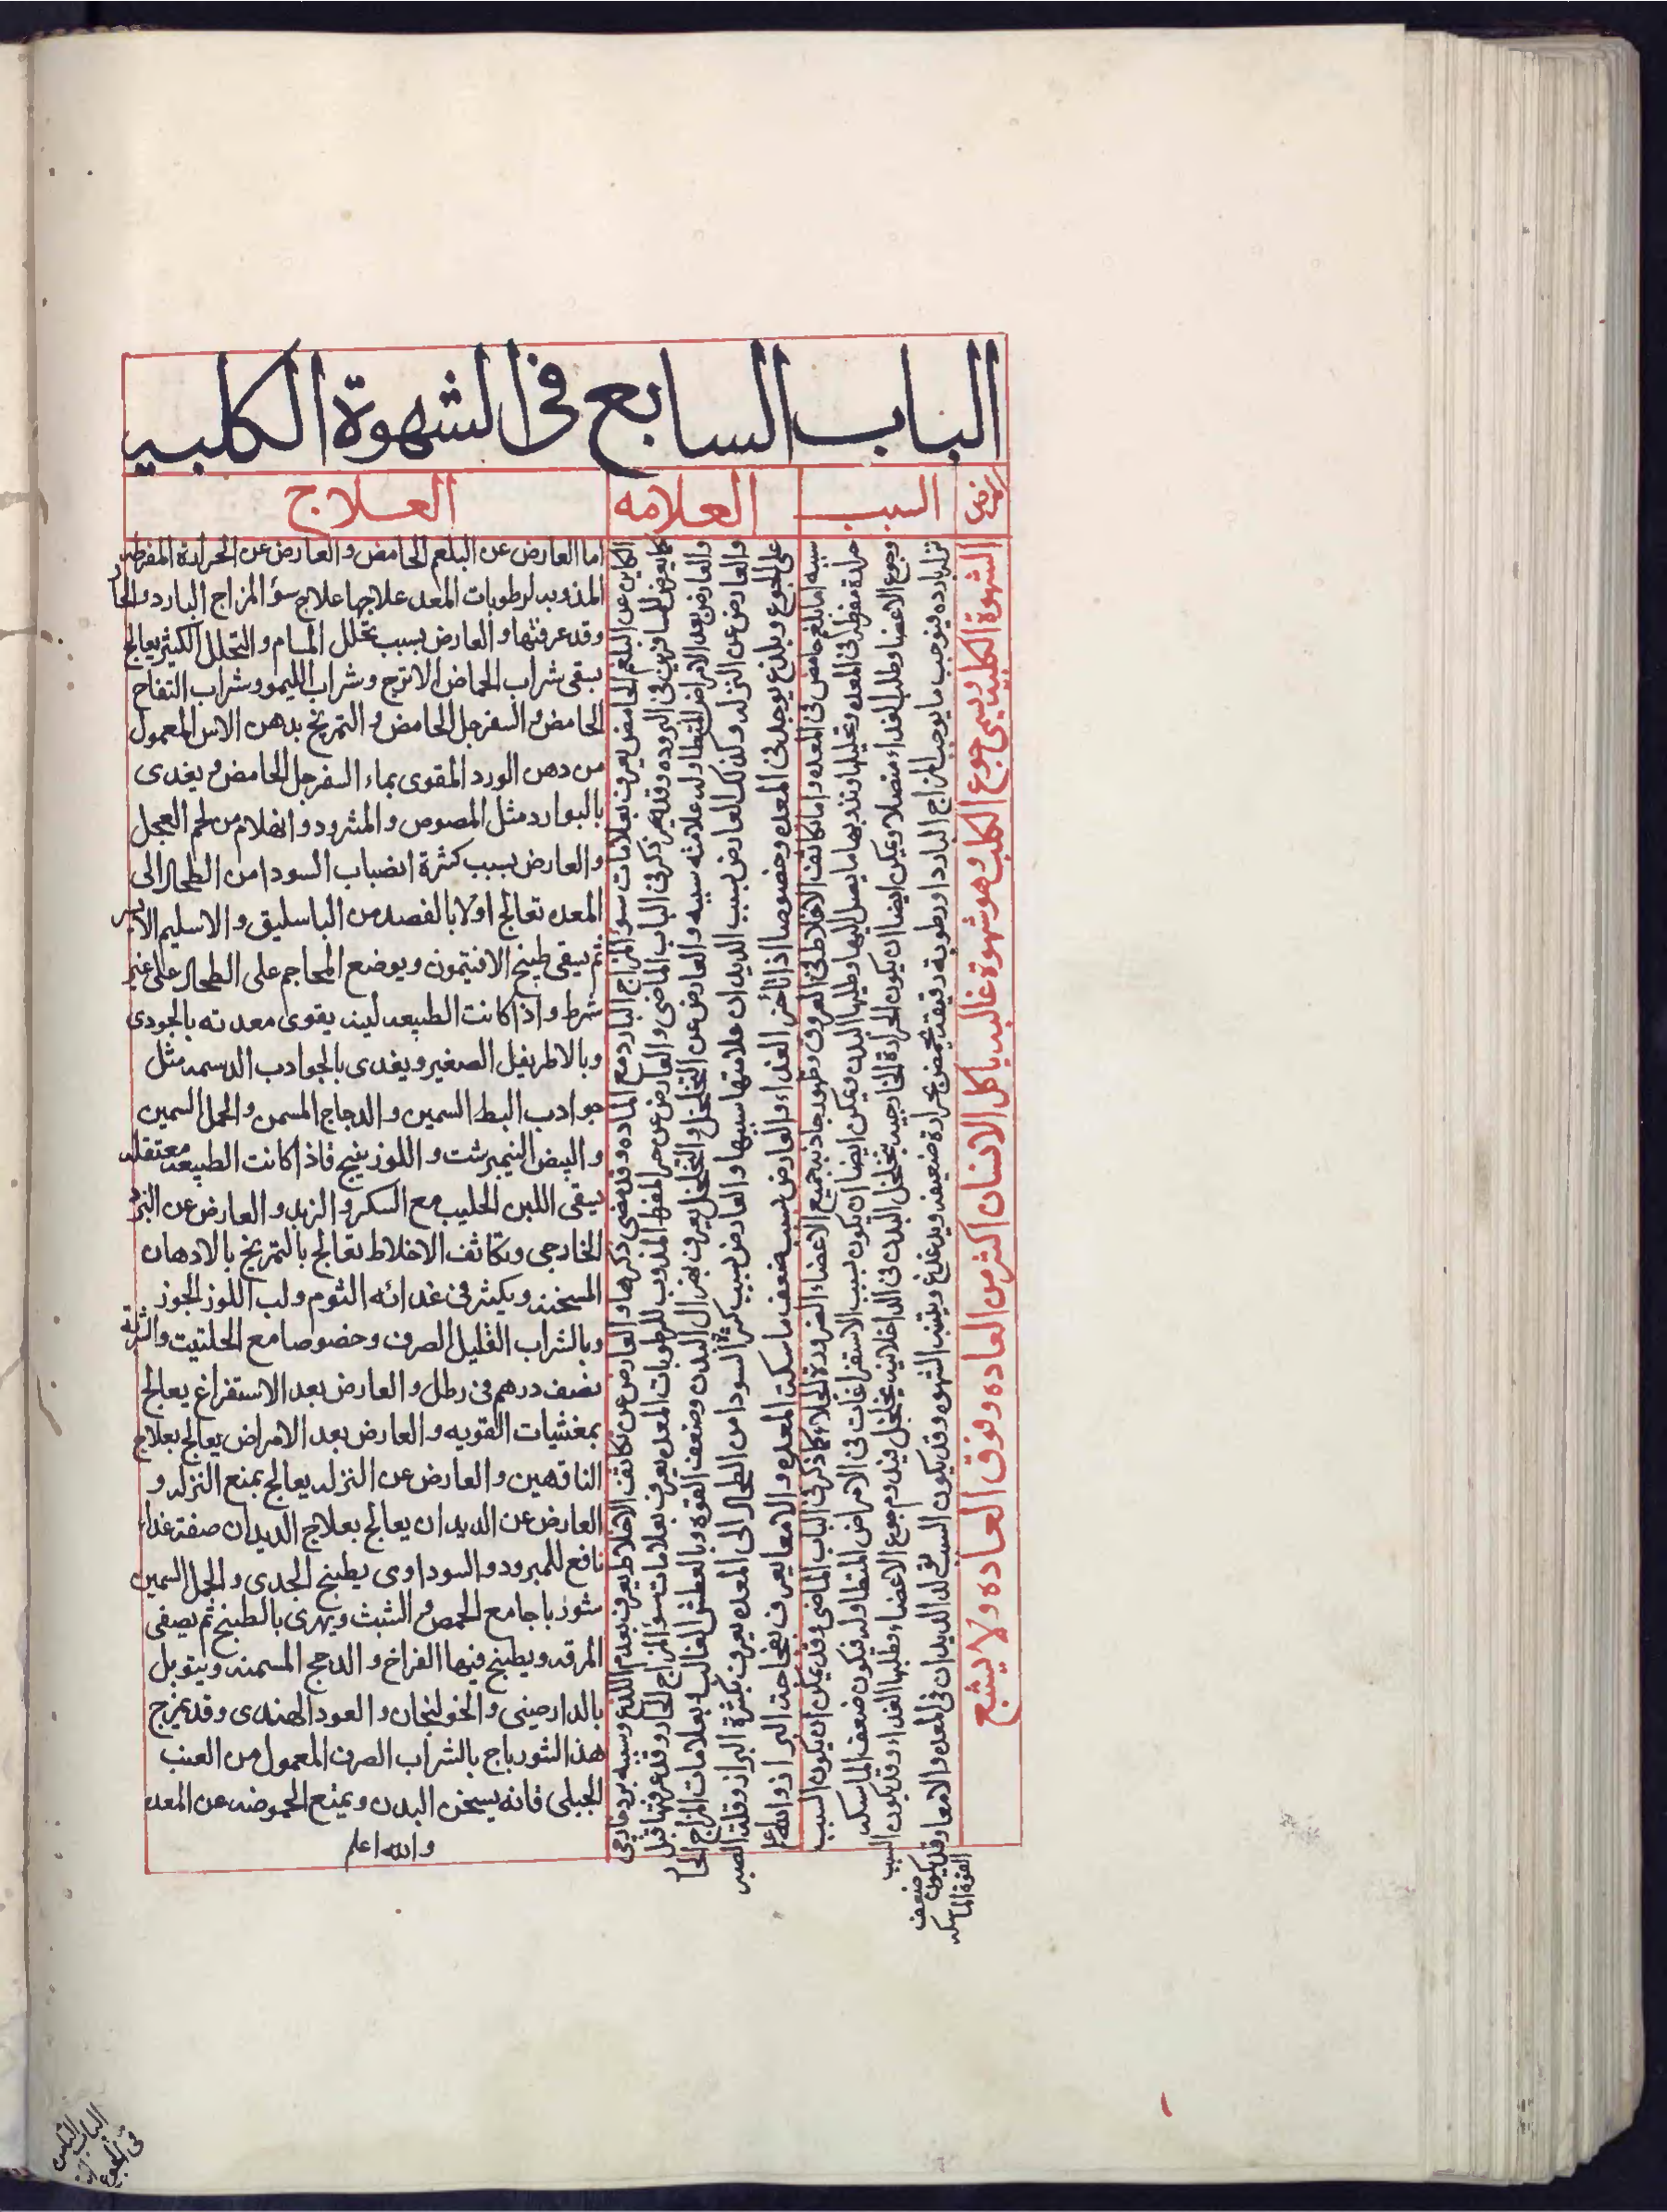 الباب السابع في الشهوة الكلبيه
المرض
السبب
العلامه
العلاج
الشهوة الكلبيه ويسمى جوع الكلب وهو شهوة غالبه ياكل الانسان اكثر من العاده وفوق العاده ولا يشبع
سببه اما بلغم حامض في المعده واما تكاثف الاخلاط في العروق وظهور جاذبه جميع الاعضاء لضرورة الخلاء كما ذكر في الباب الماضي وقد يمكن ان يكون السبب
حرارة مفرطه في المعده وتحليلها وتذويبها ما يصل اليها وطلبها البدن ويمكن ايضا ان يكون بسبب الاستفراغات في الامراض المتطاوله فيكون ضعف الماسكه
وجوع الاعضا وطلب الغداء متصلا ويمكن ايضا ان يكون الحرارة الخارجيه بتخلخل البدن في الداخلانيه يتخلخل فيدوم جوع الاعضاء وطلبها الغداء وقد يكون السبب
نزله بارده فيوجب ما يوجب المزاج البارد او رطوبة رقيقه يحمض بحرارة ضعيفه ويدغدغ وينبه الشهوه وقد يكون السبب تولد الديدان في المعده والامعا وقد يكون ضعف
القوة الماسكه
الكاين عن البلغم الحامض يعرف بعلامات سؤ المزاج البارد مع الماده وقد مضى ذكرها والعارض عن تكاثف الاخلاط يعرف بعدم اللذع وسببه برد خارجي
كما يعرض للمسافرين في البروده وقد مر ذكر في الباب الماضي والعارض عن حر المفرط المذوب للرطوبات المعده يعرف بعلامات سؤ المزاج الحار وقد عرفتها قبل
والعارض بعد الامراض المتطاوله علامته سببه والعارض عن التخلخل والتخلخل يعرف بهزال البدن وضعف القوة وبالعطش الغالب وبعلامات المزاج الحار
والعارض عن النزله وكذلك العارض بسبب الديدان علامتها سببها والعارض بسبب كثرة السودا من الطحال الى المعده يعرف بكثرة البراز وقلة الصبر
على الجوع وبلذع يوجد في المعده وخصوصا اذا تأخر الغداء والعارض بسبب ضعف ماسكة المعده والامعا يعرف بفجاجة البراز والله اعلم
اما العارض عن البلغم الحامض والعارض عن الحرارة المفرطه
المذوبه لرطوبات المعده علاجها علاج سؤ المزاج البارد والحار
وقد عرفتها والعارض بسبب تخلل المسام والتحلل الكثير يعالج
بسقى شراب الحماض الاترج وشراب الليمو وشراب التفاح
الحامض والسفرجل الحامض والتمريخ بدهن الاس المعمول
من دهن الورد المقوى بماء السفرجل الحامض ويغدى
بالبوارد مثل المصوص والمثرود والهلام من لحم العجل
والعارض بسبب كثرة انصباب السودا من الطحال الى
المعده تعالج اولا بالفصد من الباسليق والاسليم الايسر
ثم يسقى طبيخ الافتيمون ويوضع المحاجم على الطحال على غير
شرط واذا كانت الطبيعه لينه يقوى معدته بالجودى
وبالاطريفل الصغير ويغدى بالجوادب الدسمه مثل
جوادب البط السمين والدجاج المسمن والحمل السمين
والبيض النيمبرشت واللوزينج فاذا كانت الطبيعه معتقله
يسقى اللبن الحليب مع السكر والزبد والعارض عن البرد
الخارجي وتكاثف الاخلاط تعالج بالتمريخ بالادهان
المسخنه ويكثر في غدائه الثوم ولب اللوز الجوز
وبالشراب القليل الصرف وخصوصا مع الحلتيت والشربه
نصف درهم في رطل والعارض بعد الاستفراغ يعالج
بمغشيات القويه والعارض بعد الامراض يعالج بعلاج
الناقهين والعارض عن النزله يعالج بمنع النزله و
العارض عن الديدان يعالج بعلاج الديدان صفة غداء
نافع للمبرود والسوداوى يطبخ الجدى والحمل السمين
شورباجا مع الحمص والشبث ويهرى بالطبخ ثم يصفى
المرقه ويطبخ فيها الفراخ والدجج المسمنه ويتوبل
بالدارصينى والخولنجان والعود الهندى وقد يمزج
هذ الشورباج بالشراب الصرف المعمول من العنب
الجبلى فانه يسخن البدن ويمنع الحموضه عن المعده
والله اعلم
الباب الثامن
في الجوع